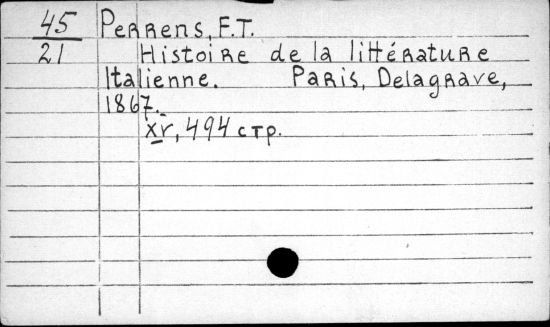 45 Perrens, F.T.
21 Histoire de la littérature
Italienne. Paris, Delagrave,
1867.
xv, 494 стр.